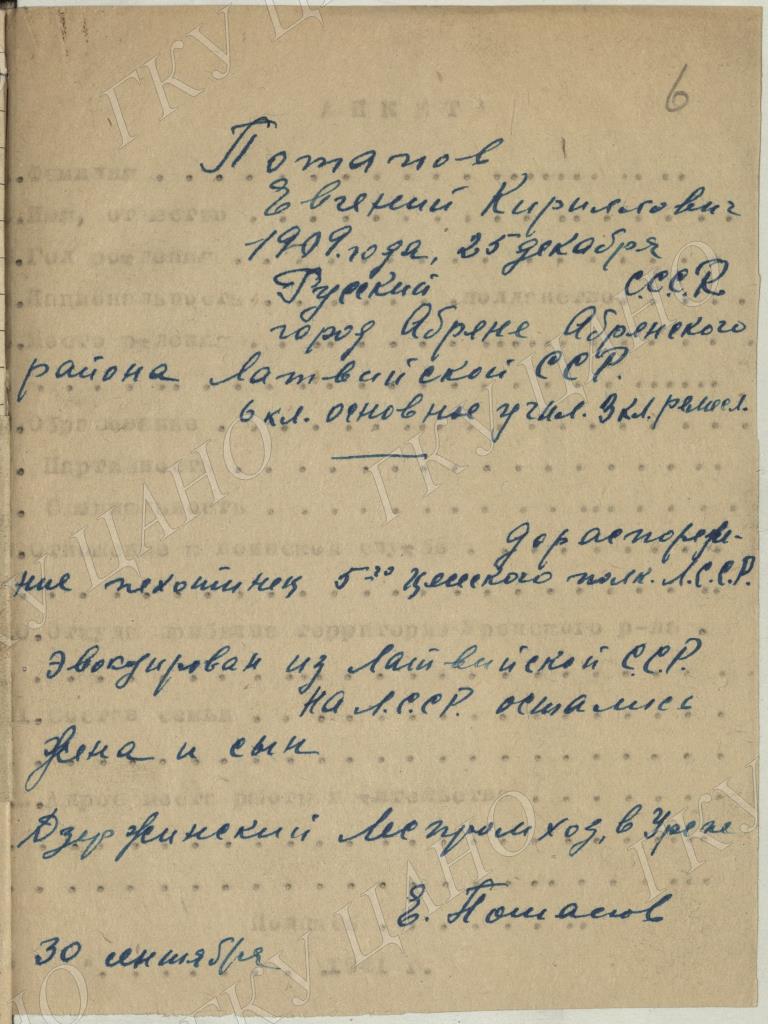 6
АНКЕТА
Потапов
.Фамилия
Евгений Кириллович
.Имя, отчество
1909.года, 25 декабря
.Год рождения
Русский С.С.С.R.
.Национальность подданство
город Абрене Абренского
.Место рождения
района Латвийской ССР.
6 кл. основные учил. 3 кл. ремесл.
.Образование
. Партийность
. Специальность
до распоряже-
.Отношение к воинской службе
ние пехотинец 5го Цесского полк. Л.С.С.Р.
.Откуда прибыл на территорию Уренского р-на
эвокуирован из Латвийской С.С.Р.
На Л.С.СР. остались
.Состав семьи
жена и сын
.Адрес места работы и жительства
Дзержинский Леспромход, в Урене
Подпись
Е. Потапов
30 сентября
1941 г.
ГКУ ЦАНО